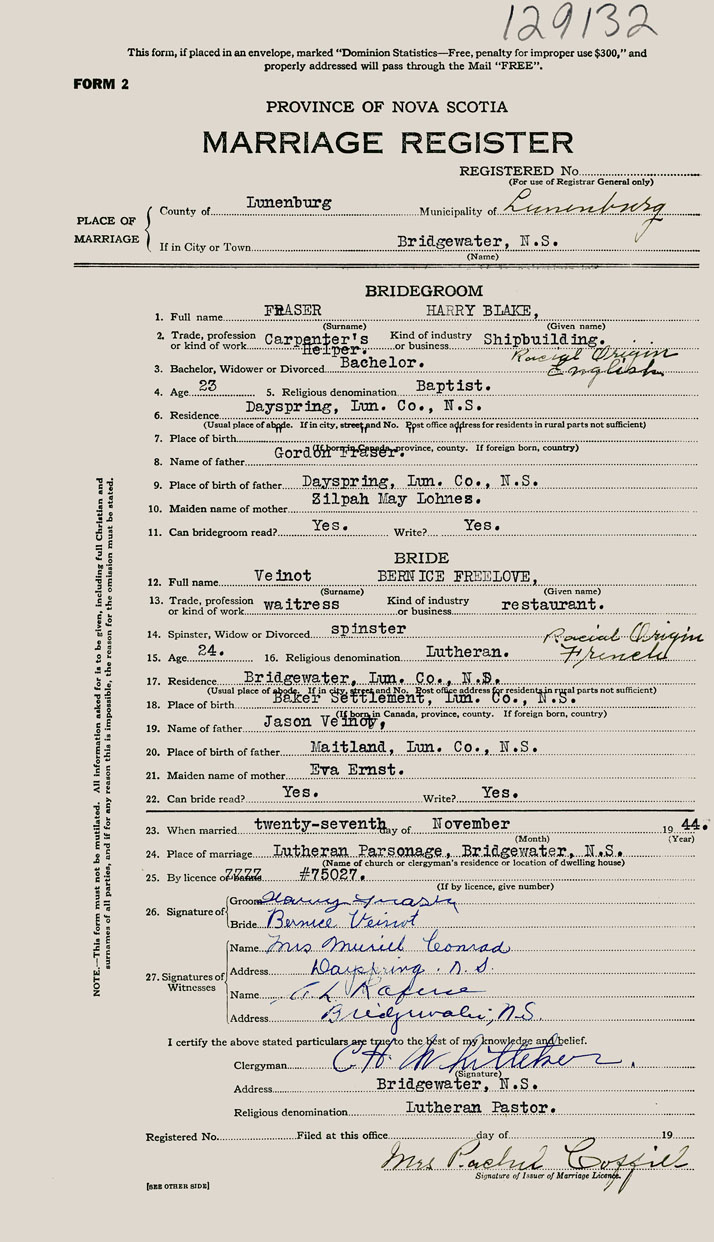 129132
This form, if placed in an envelope, marked "Dominion Statistics—Free, penalty for improper use $300," and
properly addressed will pass through the Mail "FREE".
FORM 2
PROVINCE OF NOVA SCOTIA
MARRIAGE REGISTER
REGISTERED No.
(For use of Registrar General only)
PLACE OF MARRIAGE
County of Lunenburg Municipality of Lunenburg
If in City or Town Bridgewater, N.S.
(Name)
BRIDEGROOM
1. Full name FRASER HARRY BLAKE,
(Surname) (Given name)
2. Trade, profession or kind of work Carpenter's Helper. Kind of industry or business Shipbuilding.
Racial Origin English
3. Bachelor, Widower or Divorced Bachelor.
4. Age 23 5. Religious denomination Baptist.
6. Residence Dayspring, Lun. Co., N.S.
(Usual place of abode. If in city, street and No. Post office address for residents in rural parts not sufficient)
7. Place of birth " " " "
(If born in Canada, province, county. If foreign born, country)
8. Name of father Gordon Fraser.
9. Place of birth of father Dayspring, Lun. Co., N.S.
10. Maiden name of mother Zilpah May Lohnes.
11. Can bridegroom read? Yes. Write? Yes.
BRIDE
12. Full name Veinot BERNICE FREELOVE,
(Surname) (Given name)
13. Trade, profession or kind of work waitress Kind of industry or business restaurant.
14. Spinster, Widow or Divorced spinster Racial Origin French
15. Age 24. 16. Religious denomination Lutheran.
17. Residence Bridgewater, Lun. Co., N.S.
(Usual place of abode. If in city, street and No. Post office address for residents in rural parts not sufficient)
18. Place of birth Baker Settlement, Lun. Co., N.S.
(If born in Canada, province, county. If foreign born, country)
19. Name of father Jason Veinot,
20. Place of birth of father Maitland, Lun. Co., N.S.
21. Maiden name of mother Eva Ernst.
22. Can bride read? Yes. Write? Yes.
23. When married twenty-seventh day of November 19 44.
(Month) (Year)
24. Place of marriage Lutheran Parsonage, Bridgewater, N.S.
(Name of church or clergyman's residence or location of dwelling house)
25. By licence or banns #75027.
(If by licence, give number)
26. Signature of Groom Harry Fraser
Bride Bernice Veinot
27. Signatures of Witnesses Name Mrs Muriel Conrad
Address Dayspring. N.S.
Name
Address Bridgewater, N.S.
I certify the above stated particulars are true to the best of my knowledge and belief.
Clergyman C H Whitteker.
(Signature)
Address Bridgewater, N.S.
Religious denomination Lutheran Pastor.
Registered No. Filed at this office day of 19
Mrs Rachel
Signature of Issuer of Marriage Licence.
[SEE OTHER SIDE]
NOTE.—This form must not be mutilated. All information asked for is to be given, including full Christian and
surnames of all parties, and if for any reason this is impossible, the reason for the omission must be stated.